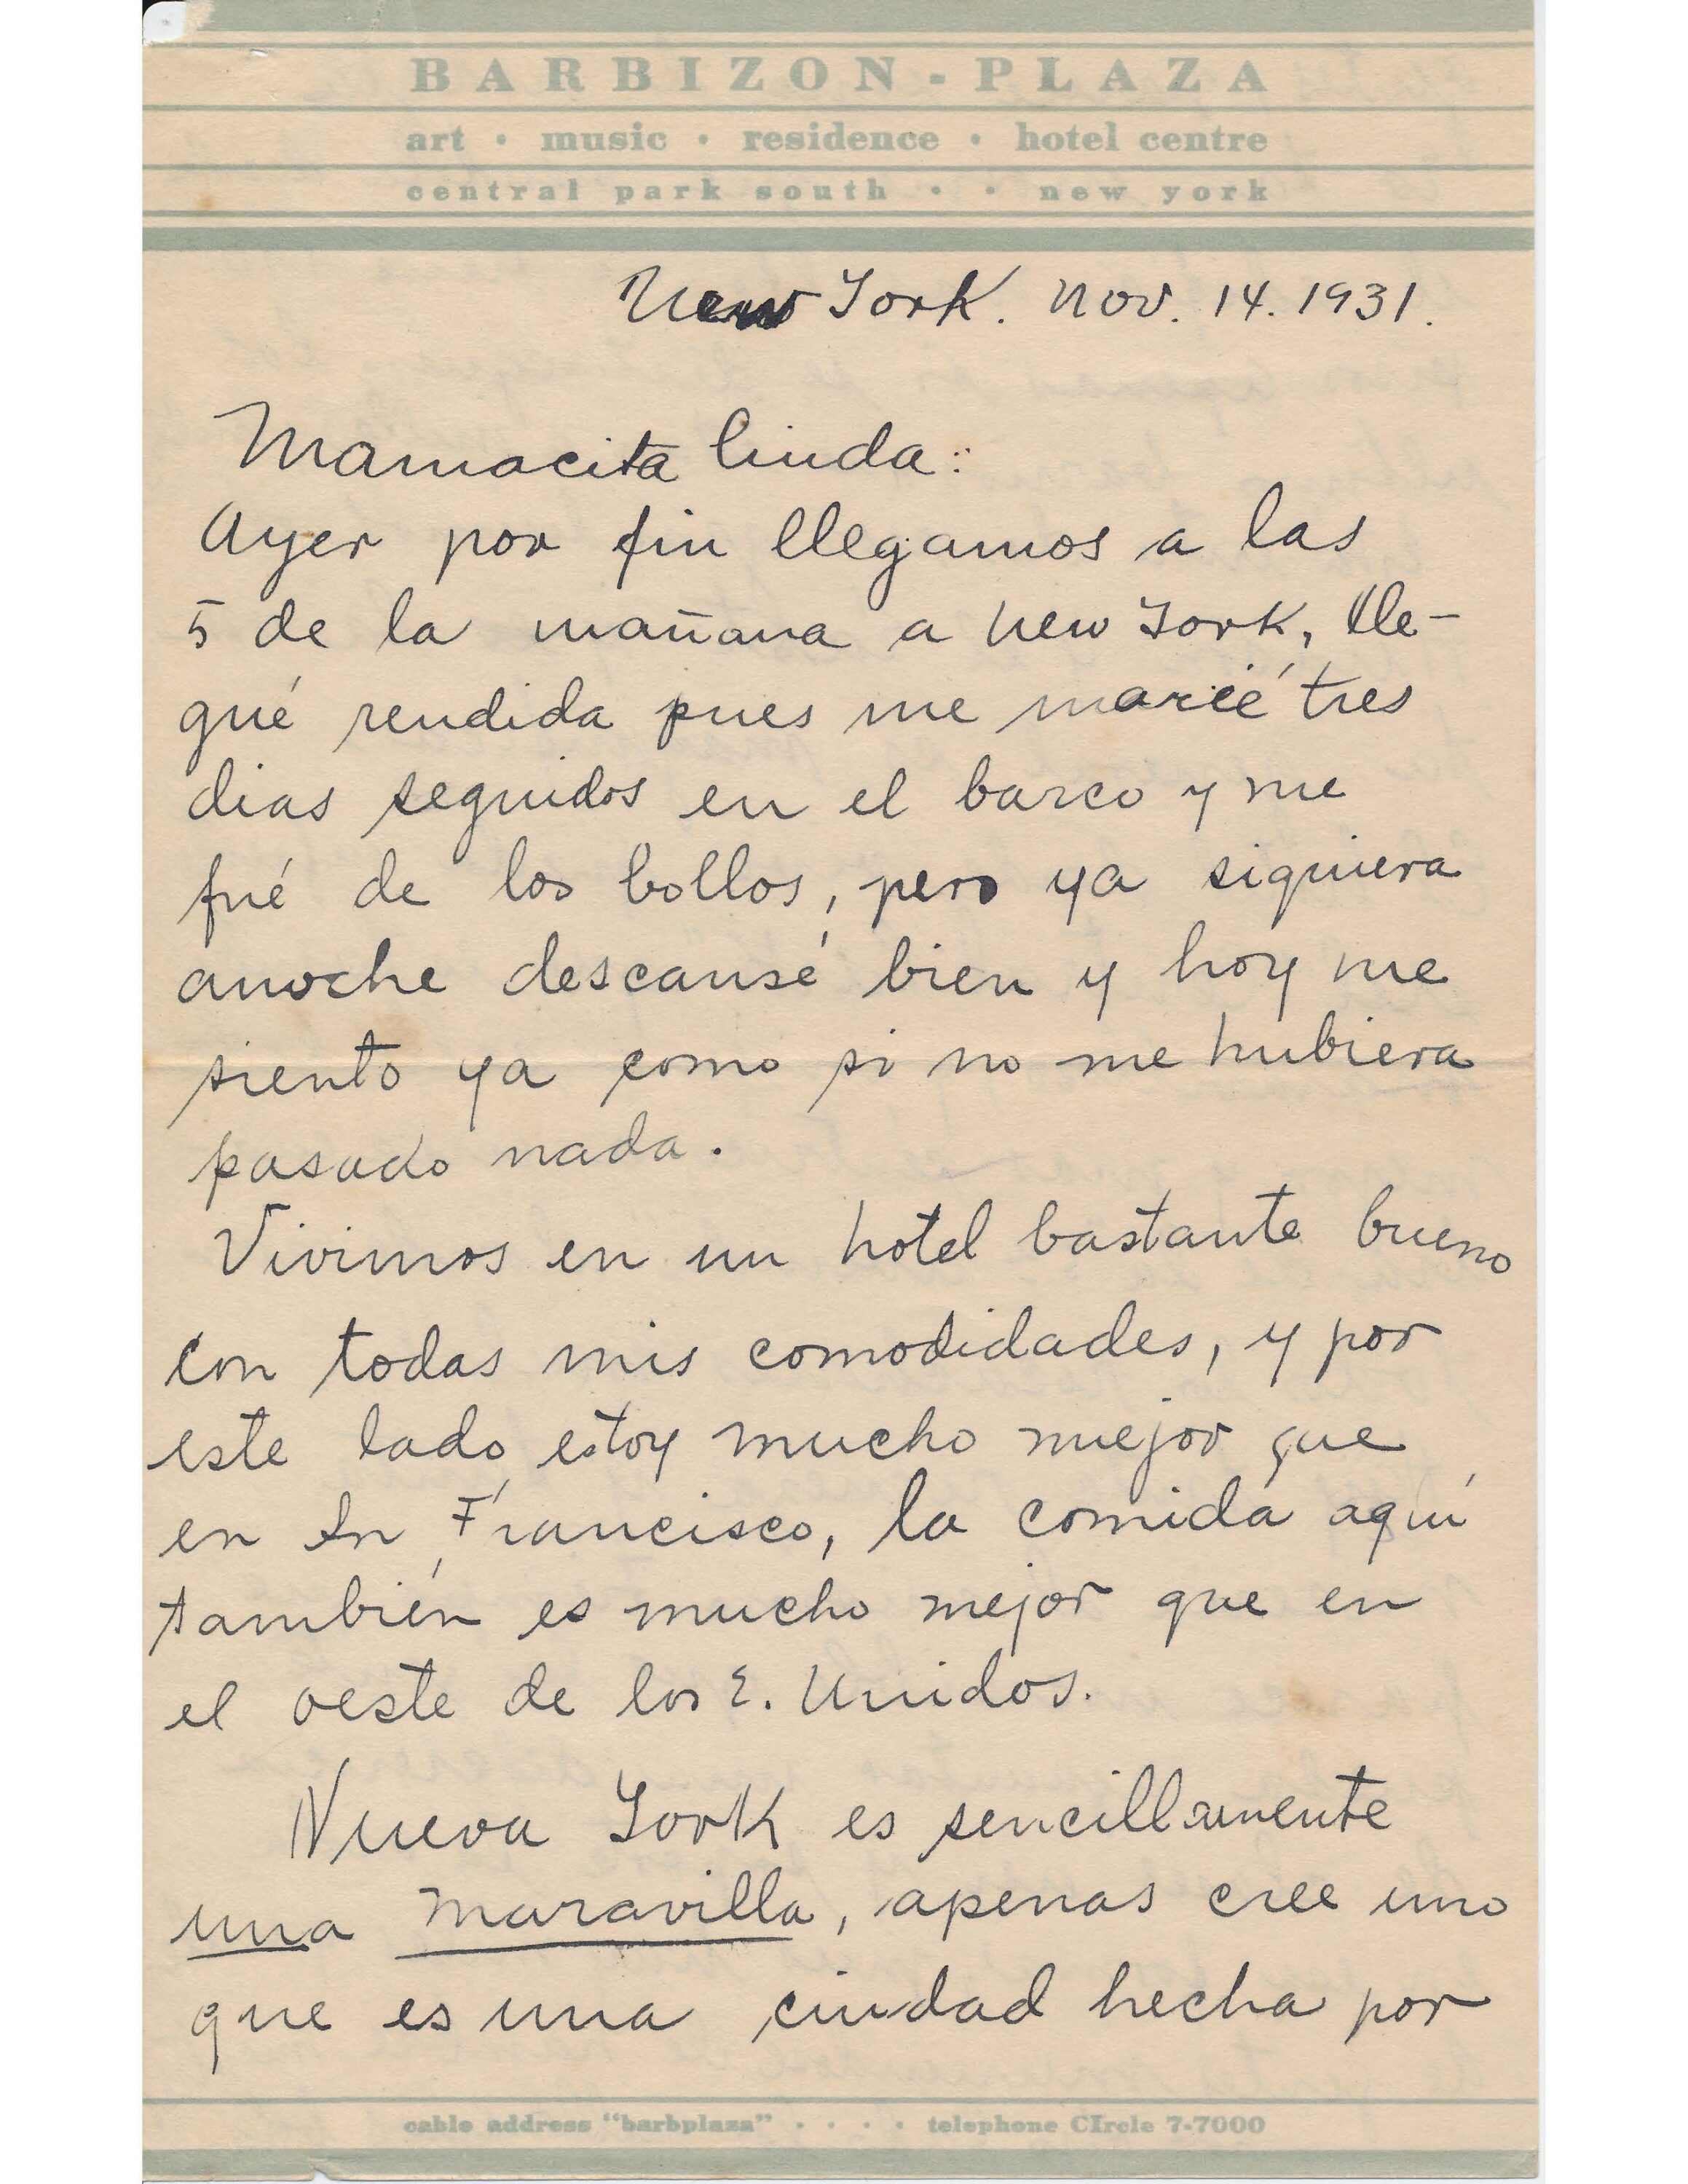 BARBIZON-PLAZA
art · music · residence · hotel centre
central park south · · new york
New York. Nov. 14. 1931.
Mamacita linda:
Ayer por fin llegamos a las
5 de la mañana a New York, lle-
gué rendida pues me marié tres
dias seguidos en el barco y me
fué de los bollos, pero ya siquiera
anoche descansé bien y hoy me
siento ya como si no me hubiera
pasado nada.
Vivimos en un hotel bastante bueno
con todas mis comodidades, y por
este lado estoy mucho mejor que
en Sn Francisco, la comida aquí
también es mucho mejor que en
el oeste de los E. Unidos.
Nueva York es sencillamente
una maravilla, apenas cree uno
que es una ciudad hecha por
cable address "barbplaza" · · · · telephone CIrcle 7-7000